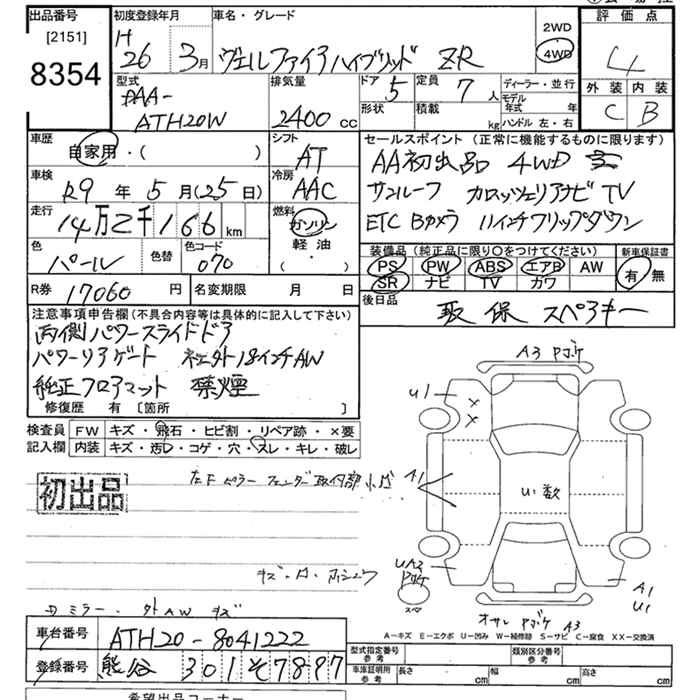 出品番号
[2151]
8354
初度登録年月
H
26 3月
車名・グレード
ヴェルファイアハイブリッド ZR
2WD
4WD
評価点
4
外装 内装
C B
型式
DAA-
ATH20W
排気量
2400 cc
ドア 5
形状
定員 7 人
積載 kg
ディーラー・並行
モデル年式 年
ハンドル 左・右
車歴
自家用・( )
シフト
AT
車検
R9 年 5 月 (25日)
冷房
AAC
走行
14万2千166 km
燃料
ガソリン
軽油
( ・ )
色
パール
色替
色コード
070
R券 17060 円
名変期限 月 日
セールスポイント (正常に機能するものに限ります)
AA初出品 4WD
サンルーフ カロッツェリアナビ TV
ETC Bカメラ 11インチフリップダウン
装備品 (純正品に限り○をつけてください)
PS PW ABS エアB AW
SR ナビ TV カワ
新車保証書
有 無
後日品
取 保 スペアキー
注意事項申告欄(不具合内容等は具体的に記入して下さい)
両側パワースライドドア
パワーリアゲート 社外18インチAW
純正フロアマット 禁煙
修復歴 有 [箇所 ]
検査員
記入欄
FW キズ・飛石・ヒビ割・リペア跡・×要
内装 キズ・汚レ・コゲ・穴・スレ・キレ・破レ
初出品
左Fピラー フェンダー取付部小凹
A1
A3 Pゴケ
U1
×
×
U1 数
UA3
Pゴケ
スペア
A1
U1
オサレ Pゴケ A3
ミラー・外AW キズ
A-キズ E-エクボ U-凹み W-補修跡 S-サビ C-腐食 XX-交換済
車台番号 ATH20-8041222
登録番号 熊谷 301 そ 7897
型式指定番号
参考
類別区分番号
参考
車庫証明用
参考
長さ cm 幅 cm 高さ cm
希望出品コーナー